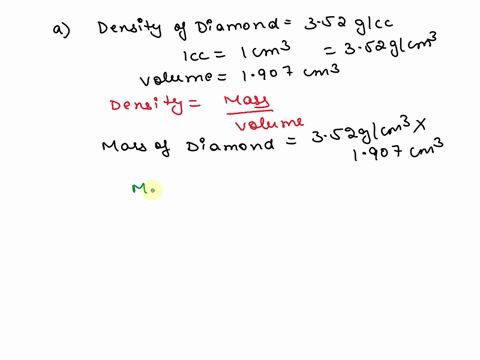 a) Density of Diamond = 3.52 g/cc
1cc = 1 cm³ = 3.52 g/cm³
Volume = 1.907 cm³
Density = Mass
Volume
Mass of Diamond = 3.52 g/cm³ ×
1.907 cm³
M.